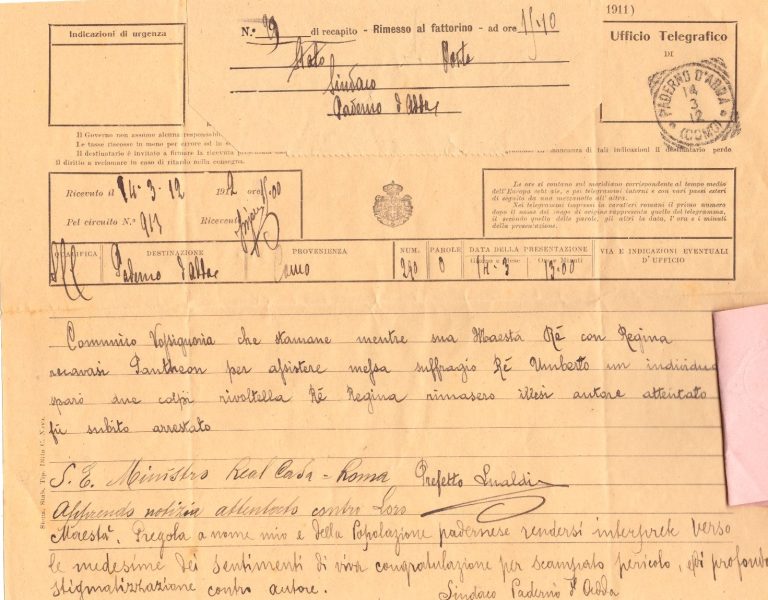 1911)
Indicazioni di urgenza
N.° 29 di recapito - Rimesso al fattorino - ad ore 15,10
Stato Posta
Sindaco
Paderno d'Adda
Ufficio Telegrafico
DI
PADERNO D'ADDA
14
3
12
(COMO)
Il Governo non assume alcuna responsabi
Le tasse riscosse in meno per errore od in s
Il destinatario è invitato a firmare la ricevuta
il diritto a reclamare in caso di ritardo nella consegna.
mancanza di tale indicazioni il destinatario perde
Ricevuto il 14-3-12 1912 ore 15.00
Pel circuito N.° 913 Ricevente
Le ore si contano sul meridiano corrispondente al tempo medio
dell'Europa
di seguito da una mezzanotte all'altra.
Nei telegrammi impressi in caratteri romani il primo numero
dopo il nome del luogo di origine rappresenta quello del telegramma,
il secondo quello delle parole, gli altri la data, l'ora e i minuti
della presentazione.
QUALIFICA DESTINAZIONE PROVENIENZA NUM. PAROLE DATA DELLA PRESENTAZIONE VIA E INDICAZIONI EVENTUALI
Giorno e Mese Ore e Minuti D'UFFICIO
Paderno d'Adda Como 290 0 14-3 13.00
Comunico Vossignoria che stamane mentre sua Maestà Rè con Regina
recavasi Pantheon per assistere messa suffragio Rè Umberto un individuo
sparò due colpi rivoltella Rè Regina rimasero illesi autore attentato
fù subito arrestato
Prefetto
S. E. Ministro Real Casa - Roma
Apprendo notizia attentato contro Loro
Maestà. Pregola a nome mio e della Popolazione padernese rendersi interprete verso
le medesime dei sentimenti di viva congratulazione per scampato pericolo, e di profonda
stigmatizzazione contro autore.
Sindaco Paderno d'Adda